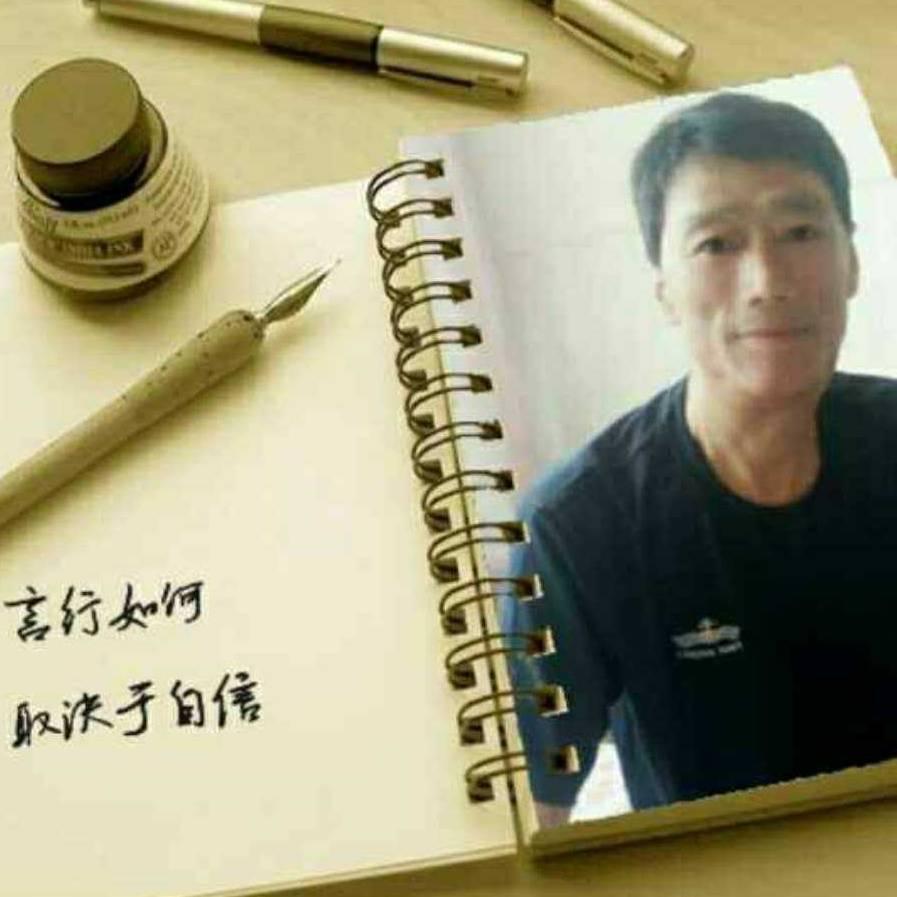 言行如何
取决于自信
INDIA INK